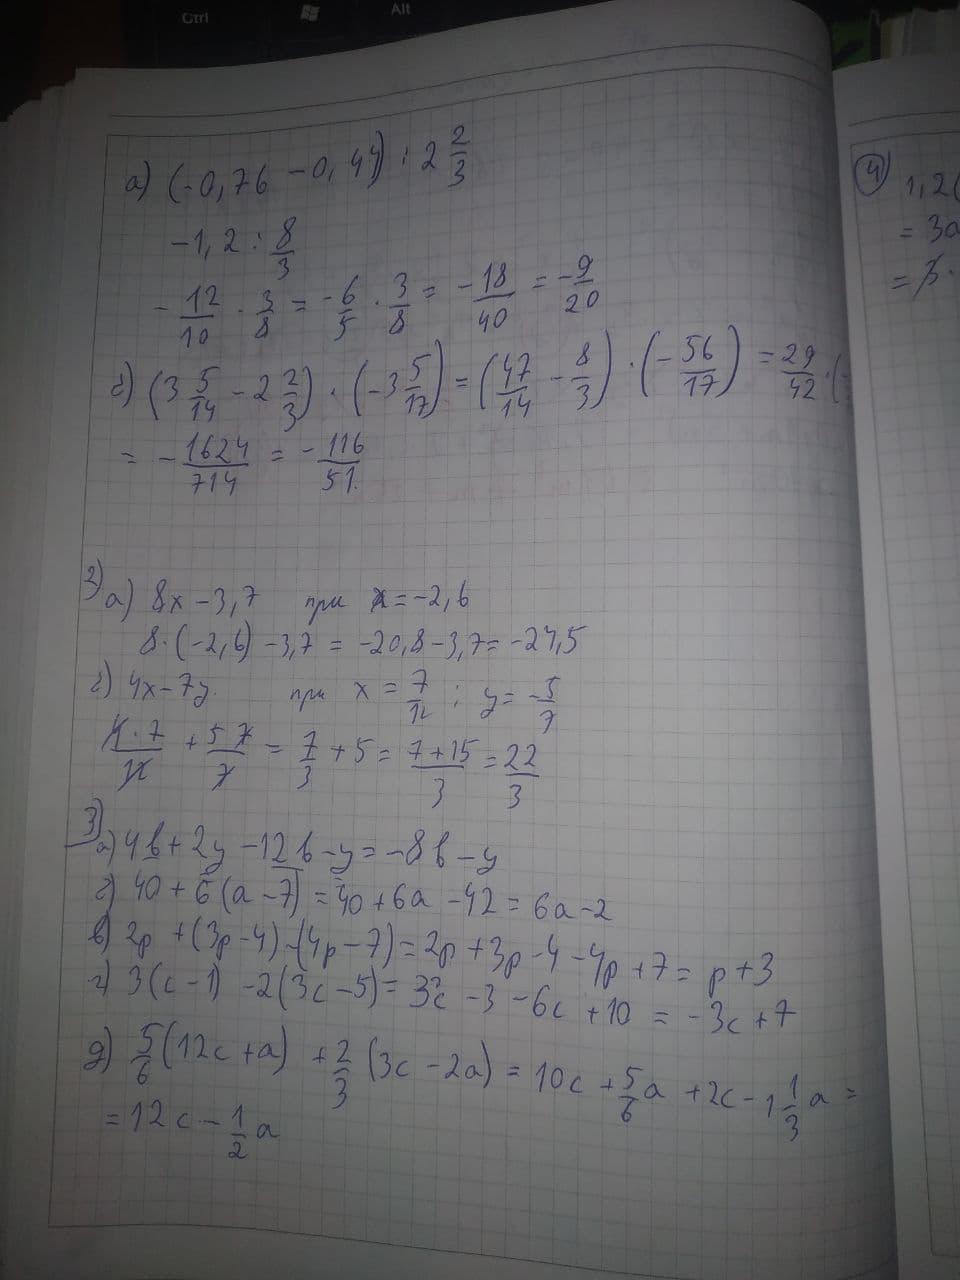 Ctrl
Alt
а) (-0,76 -0,44) : 2 2/3
-1,2 : 8/3
- 12/10 · 3/8 = -6/5 · 3/8 = -18/40 = -9/20
б) (3 5/14 - 2 2/3) · (-3 5/17) = (47/14 - 8/3) · (- 56/17) = 29/42 · (-
= - 1624/714 = - 116/51.
2)
а) 8x - 3,7 при x = -2,6
8·(-2,6) -3,7 = -20,8-3,7= -24,5
б) 4x-7y. при x = 7/12 ; y= -5/7
4·7/12 + 5·7/7 = 7/3 + 5 = 7+15/3 = 22/3
3)
а) 4b+2y -12b -y = -8b -y
б) 40 + 6(a -7) = 40 +6a -42 = 6a-2
в) 2p +(3p-4) -(4p-7) = 2p +3p -4 -4p +7 = p+3
г) 3(c-1) -2(3c-5) = 3c -3 -6c +10 = -3c+7
д) 5/6(12c+a) + 2/3(3c-2a) = 10c + 5/6a +2c - 1 1/3 a =
= 12c - 1/2 a
4)
1,2(
= 3a